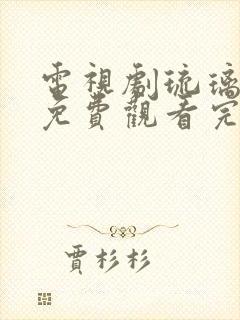 電視劇琉璃
免費觀看完
賈杉杉